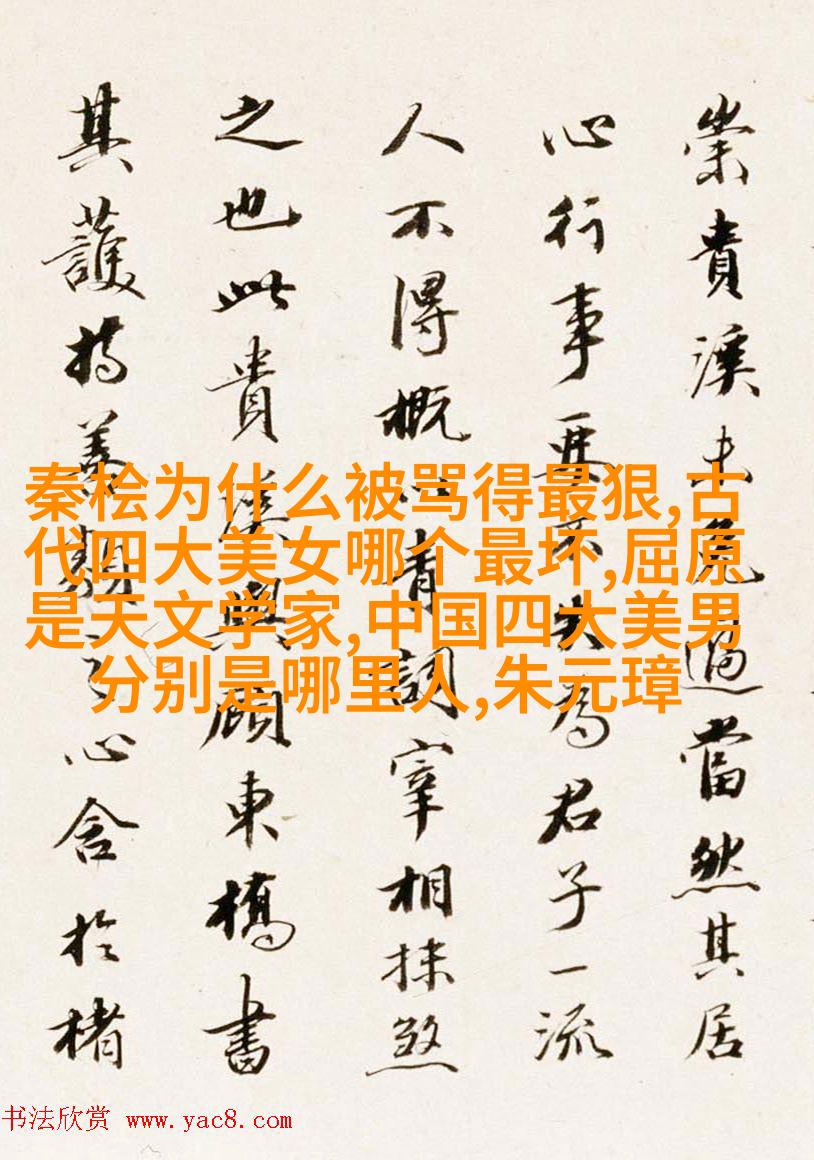 崇貴溪未免過當然其居
心行事要不失為君子一流
人不得概以青詞宰相抹煞
之也此貴溪與顧東橋書
其護持善類之心含於楮
秦桧为什么被骂得最狠,古
代四大美女哪个最坏,屈原
是天文学家,中国四大美男
分别是哪里人,朱元璋
书法欣赏 www.yac8.com